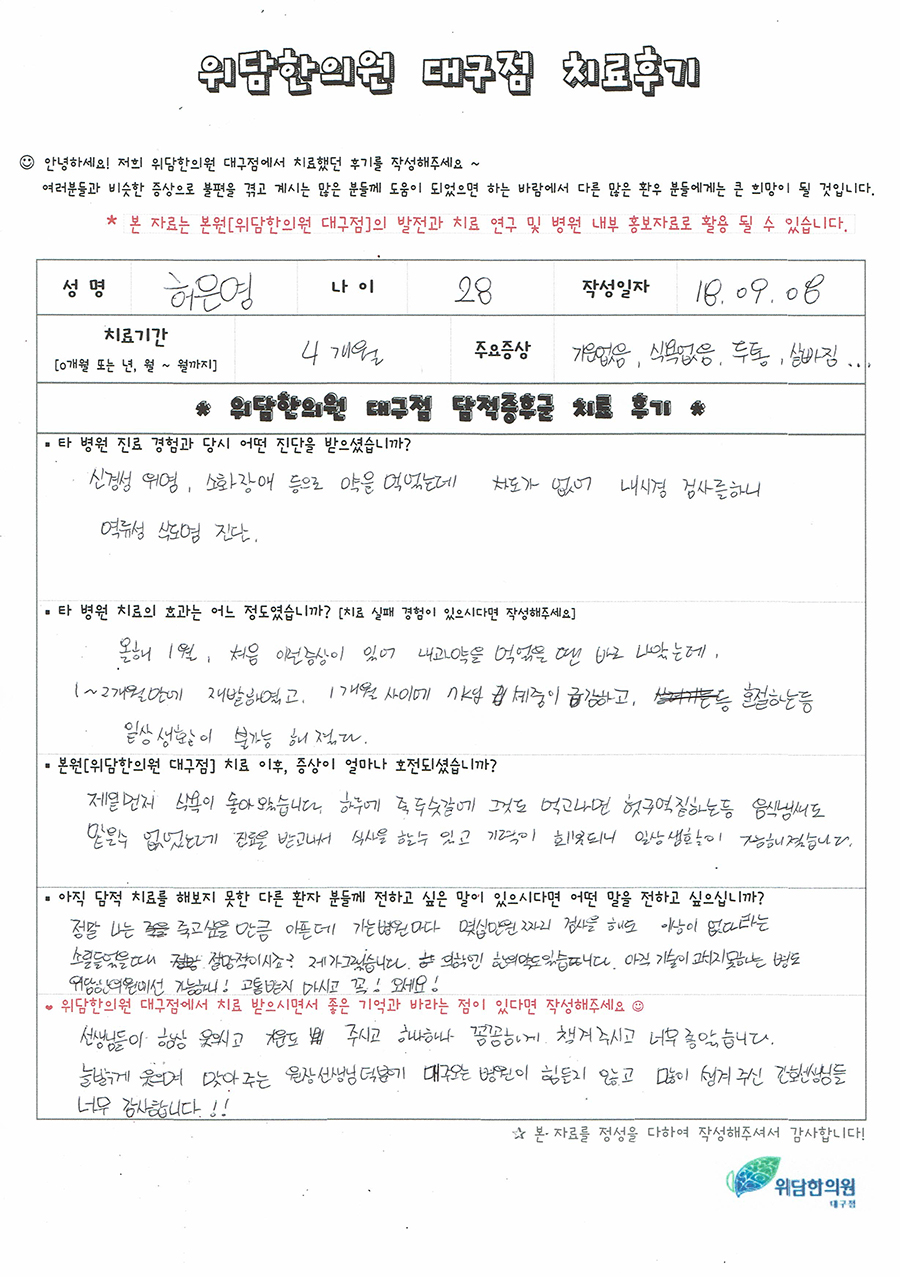 위담한의원 대구점 치료후기
안녕하세요! 저희 위담한의원 대구점에서 치료했던 후기를 작성해주세요 ~
여러분들과 비슷한 증상으로 불편을 겪고 계시는 많은 분들께 도움이 되었으면 하는 바람에서 다른 많은 환우 분들에게는 큰 희망이 될 것입니다.
* 본 자료는 본원[위담한의원 대구점]의 발전과 치료 연구 및 병원 내부 홍보자료로 활용 될 수 있습니다.
성 명 허은영 나 이 28 작성일자 18. 09. 08
치료기간 [0개월 또는 년, 월 ~ 월까지] 4 개월 주요증상 기운없음, 식욕없음, 두통, 살빠짐 ...
* 위담한의원 대구점 담적증후군 치료 후기 *
▪ 타 병원 진료 경험과 당시 어떤 진단을 받으셨습니까?
신경성 위염, 소화장애 등으로 약을 먹었는데 차도가 없어 내시경 검사를하니
역류성 식도염 진단.
▪ 타 병원 치료의 효과는 어느 정도였습니까? [치료 실패 경험이 있으시다면 작성해주세요]
올해 1월, 처음 이런증상이 있어 내과약을 먹었을 땐 바로 나았는데,
1~2개월만에 재발하였고, 1개월 사이에 체중이 급감하고, 등 혼절하는등
일상생활이 불가능 해졌다.
▪ 본원[위담한의원 대구점] 치료 이후, 증상이 얼마나 호전되셨습니까?
제일먼저 식욕이 돌아왔습니다. 하루에 죽 두숫갈에 그것도 먹고나면 헛구역질하는등 음식냄새도
맡을수 없었는데 진료를 받고나서 식사를 할수 있고 기력이 회복되니 일상생활이 가능해졌습니다.
▪ 아직 담적 치료를 해보지 못한 다른 환자 분들께 전하고 싶은 말이 있으시다면 어떤 말을 전하고 싶으십니까?
정말 나는 죽고싶을 만큼 아픈데 가는병원마다 몇십만원짜리 검사를 해도 이상이 없다라는
소릴들었을때 절망적이시죠? 제가그랬습니다. 아직 기술이 고치지못하는 병도
위담한의원에선 가능하니! 고통받지 마시고 꼭! 오세요!
♥ 위담한의원 대구점에서 치료 받으시면서 좋은 기억과 바라는 점이 있다면 작성해주세요
선생님들이 항상 웃으시고 주시고 하나하나 꼼꼼하게 챙겨주시고 너무좋았습니다.
늘밝게 웃으며 맞아주는 원장선생님덕분에 대구오는 병원이 힘들지 않고 많이 챙겨주신 간호선생님들
너무 감사합니다.!!
☆ 본 자료를 정성을 다하여 작성해주셔서 감사합니다!
위담한의원
대구점